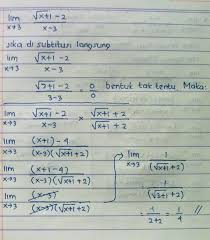 lim x→3 √x+1 − 2 / x − 3
Jika di subtitusi langsung
lim x→3 √x+1 − 2 / x − 3
√3+1 − 2 / 3−3 = 0/0 bentuk tak tentu Maka:
lim x→3 √x+1 − 2 / x − 3 × √x+1 + 2 / √x+1 + 2
lim x→3 (x+1) − 4 / (x−3)(√x+1 + 2)
lim x→3 (x+1−4) / (x−3)(√x+1 + 2)
lim x→3 (x−3) / (x−3)(√x+1 + 2)
lim x→3 1 / (√x+1 + 2)
= 1 / (√3+1 + 2)
= 1 / 2+2 = 1/4 //